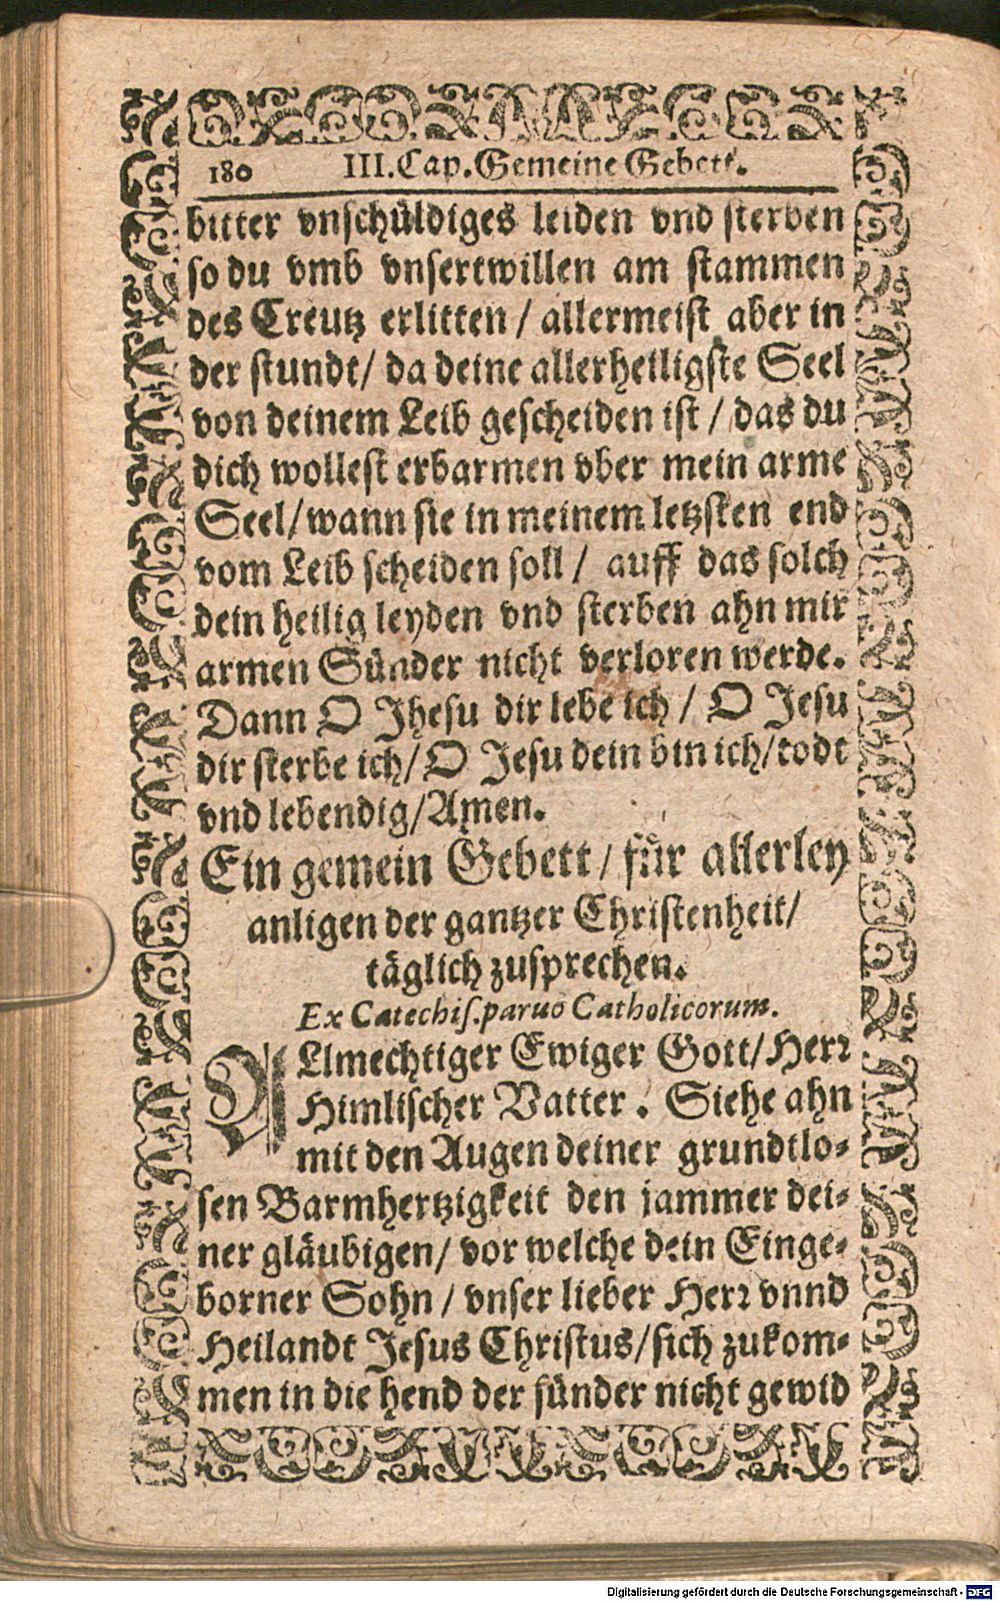 180 III. Cap. Gemeine Gebett.
bitter vnschüldiges leiden vnd sterben
so du vmb vnsertwillen am stammen
des Creutz erlitten / allermeist aber in
der stundt / da deine allerheiligste Seel
von deinem Leib gescheiden ist / das du
dich wollest erbarmen vber mein arme
Seel / wann sie in meinem letzsten end
vom Leib scheiden soll / auff das solch
dein heilig leyden vnd sterben ahn mir
armen Sünder nicht verloren werde.
Dann O Jhesu dir lebe ich / O Jesu
dir sterbe ich / O Jesu dein bin ich / todt
vnd lebendig / Amen.
Ein gemein Gebett / für allerley
anligen der gantzer Christenheit /
täglich zusprechen.
Ex Catechis. paruo Catholicorum.
ALlmechtiger Ewiger Gott / Herr
Himlischer Vatter. Siehe ahn
mit den Augen deiner grundtlo-
sen Barmhertzigkeit den jammer dei-
ner gläubigen / vor welche dein Einge-
borner Sohn / vnser lieber Herr vnnd
Heilandt Jesus Christus / sich zukom-
men in die hend der sünder nicht gewid
Digitalisierung gefördert durch die Deutsche Forschungsgemeinschaft - DFG